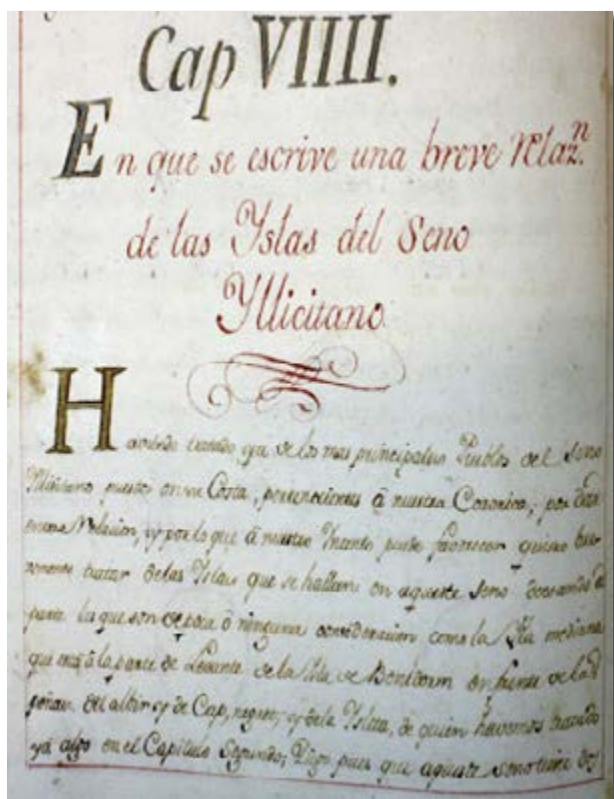 Cap VIIII.
En que se escrive una breve Relaz.n
de las Yslas del Seno
Yllicitano
Haviendo tratado ya de los mas principales Pueblos del Seno
Yllicitano puesto en su Costa, pertenecientes â nuestra Coronica, por
Relacion, y por lo que â nuestro Yntento puede favorecer quiero
tratar de las Yslas que se hallan en aqueste Seno dexando
parte la que son de poca ô ninguna consideracion como la Ysla mediana
que está â la parte de Levante de la Ysla de Benidorm en frente de las
peñas del albir y de Cap, negre; y de la Ysleta, de quien havemos tratado
yá algo en el Capitulo Segundo; Digo pues que aqueste seno tiene dos